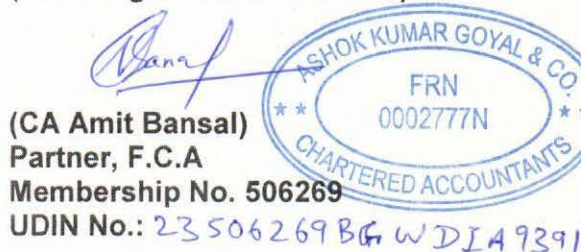 ASHOK KUMAR GOYAL & CO.
FRN
0002777N
CHARTERED ACCOUNTANTS
(CA Amit Bansal)
Partner, F.C.A
Membership No. 506269
UDIN No.: 23506269BGWDIA9391